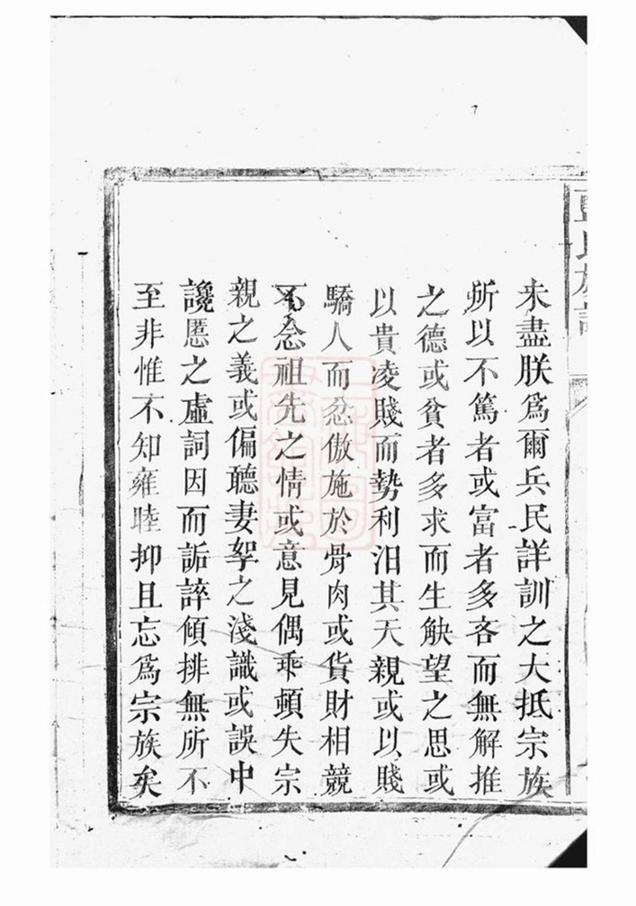 未盡朕為爾兵民詳訓之大抵宗族
所以不篤者或富者多吝而無解推
之德或貧者多求而生觖望之思或
以貴凌賤而勢利汨其天親或以賤
驕人而忿傲施於骨肉或貨財相競
不念祖先之情或意見偶乖頓失宗
親之義或偏聽妻孥之淺識或誤中
讒慝之虛詞因而詬誶傾排無所不
至非惟不知雍睦抑且忘為宗族矣